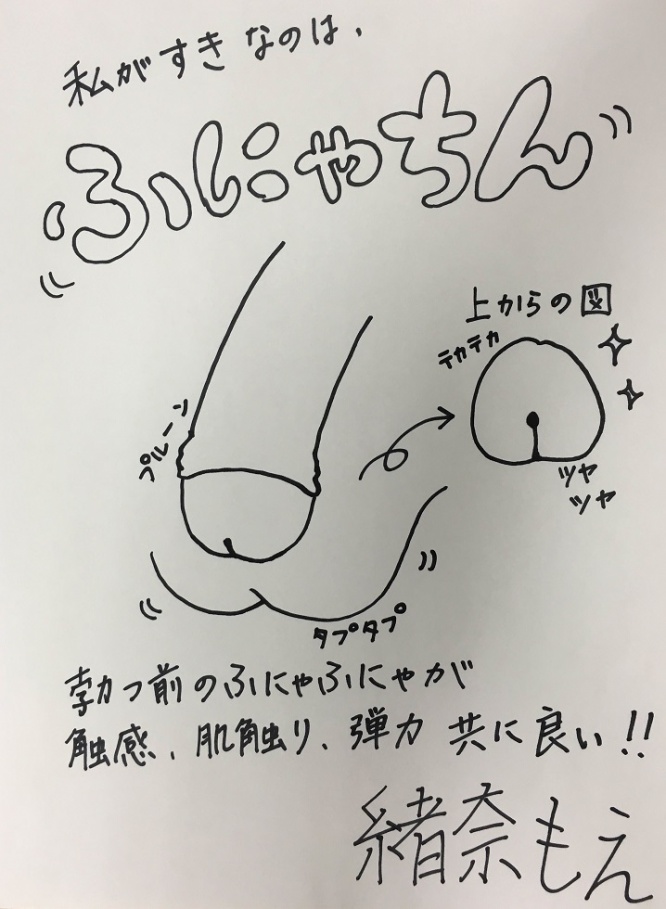 私がすきなのは、
ふにゃちん
上からの図
テカテカ
プルーン
ツヤ
ツヤ
タプタプ
勃つ前のふにゃふにゃが
触感、肌触り、弾力 共に良い!!
緒奈もえ